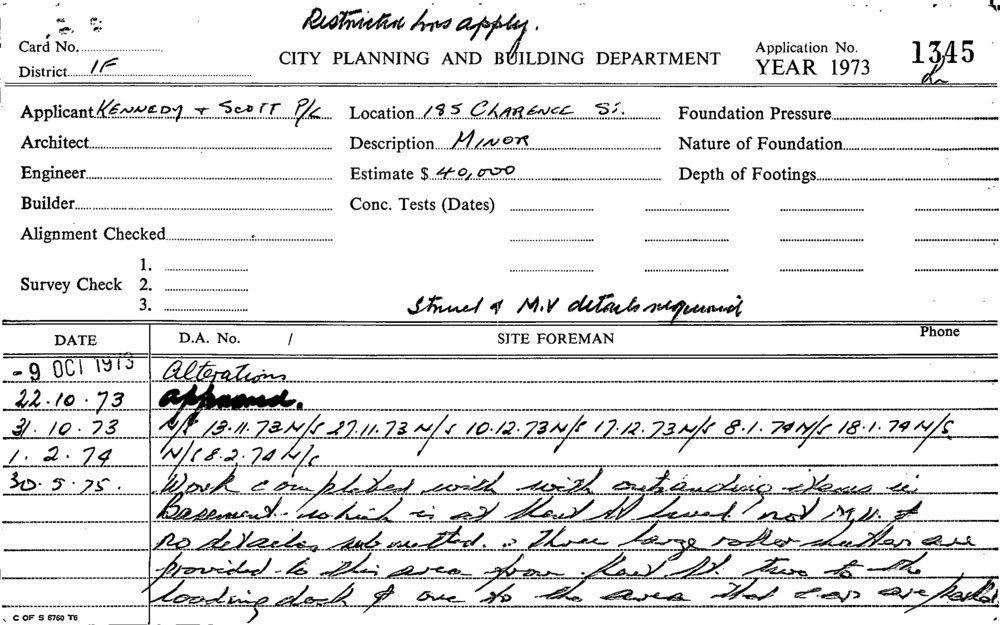 Restricted hrs apply.
Card No.
District 1F
CITY PLANNING AND BUILDING DEPARTMENT
Application No. 1345
YEAR 1973
Applicant KENNEDY + SCOTT P/L Location 185 CLARENCE ST. Foundation Pressure
Architect Description MINOR Nature of Foundation
Engineer Estimate $ 40,000 Depth of Footings
Builder Conc. Tests (Dates)
Alignment Checked
Survey Check 1.
2.
3.
Struct & M.V details required
DATE D.A. No. / SITE FOREMAN Phone
-9 OCT 1973 Alterations
22.10.73 approved.
31.10.73 N/S 13.11.73 N/S 27.11.73 N/S 10.12.73 N/S 17.12.73 N/S 8.1.74 N/S 18.1.74 N/S
1.2.74 N/S 8.2.74 N/S
30.5.75. Work completed with with outstanding items in
Basement which is at Kent St level not M.V. &
no details submitted. Three large roller shutters are
provided to this area from Kent St. two to the
loading dock & one to the area that cars are parked
C OF S 6760 T6